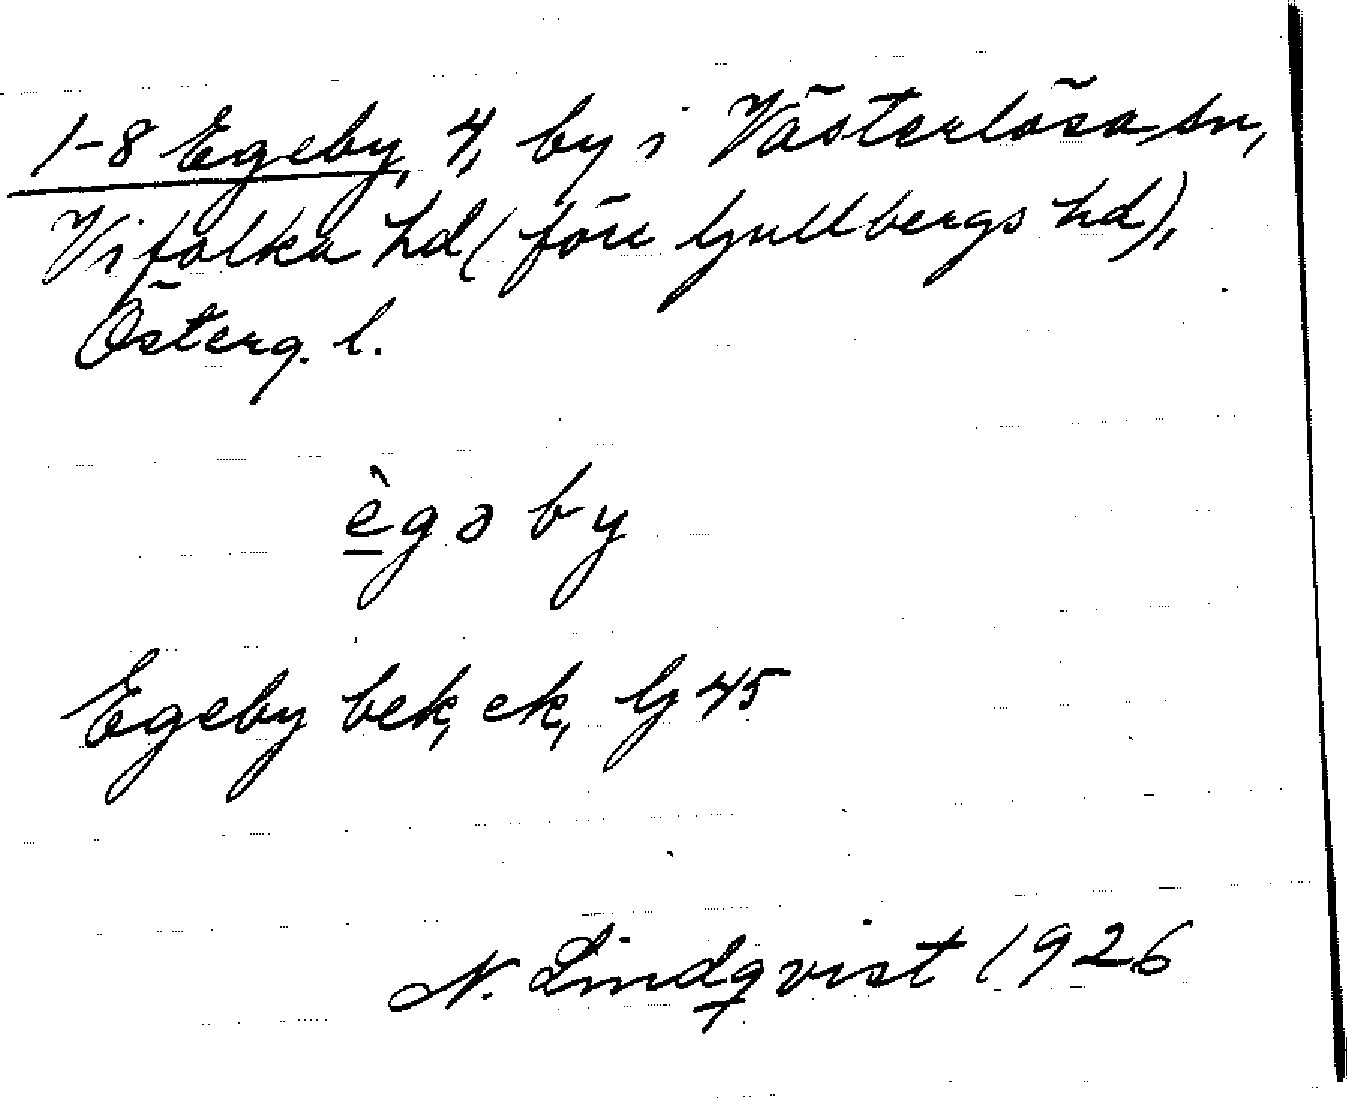 1-8 Egeby, 4, by i Västerlösa sn,
Vifolka hd (förr Gullbergs hd),
Österg. l.
ègəby
Egeby bek, ek, G 45
N. Lindqvist 1926